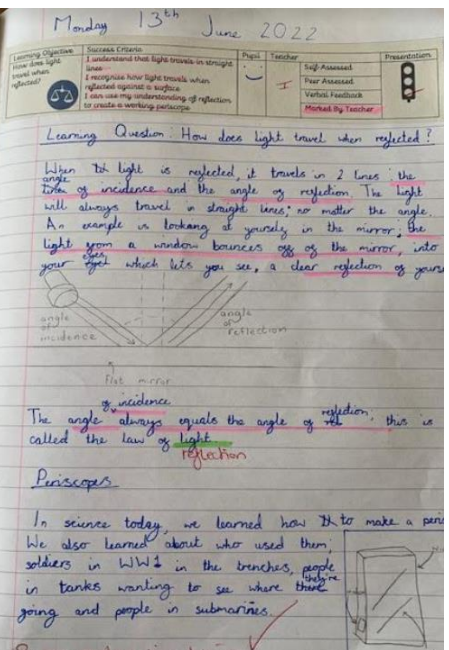 Monday 13th June 2022
Learning Objective
How does light
travel when
reflected?
Success Criteria
I understand that light travels in straight
lines
I recognise how light travels when
reflected against a surface
I can use my understanding of reflection
to create a working periscope.
Pupil
Teacher
I
Self-Assessed
Peer Assessed
Verbal Feedback
Marked By Teacher
Presentation
Learning Question: How does light travel when reflected?
When light is reflected, it travels in 2 lines: the
angle
of incidence and the angle of reflection. The light
will always travel in straight lines; no matter the angle.
An example is looking at yourself in the mirror; the
light from a window bounces off of the mirror, into
your eyes which lets you see, a clear reflection of yours
angle
of
incidence
angle
of
reflection
Flat mirror
of incidence
The angle always equals the angle of reflection, this is
called the law of light
reflection
Periscopes
In science today, we learned how to make a peris
We also learned about who used them;
soldiers in WW1 in the trenches, people
in tanks wanting to see where they're
going and people in submarines.